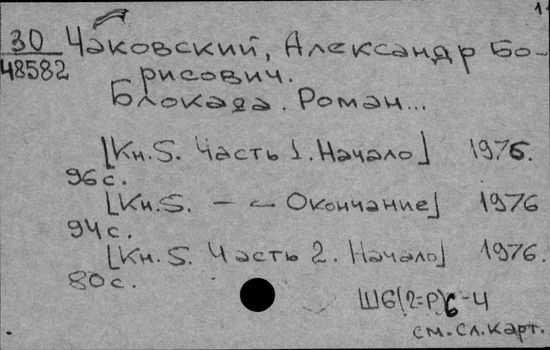 30
48582
Чаковский, Александр Бо-
рисович.
Блокада. Роман...
[Кн.5. Часть 1. Начало] 1976.
96 с.
[Кн.5. — „— Окончание] 1976
94 с.
[Кн.5. Часть 2. Начало] 1976.
80 с.
Ш6(2=Р)6-4
см. сл. карт.